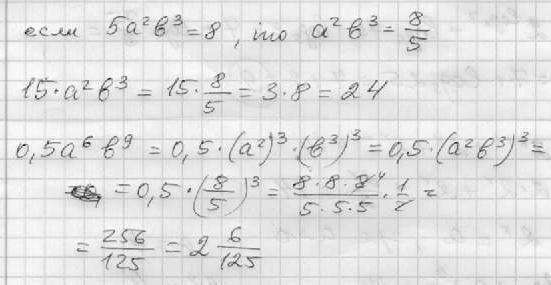 если 5a²b³ = 8, то a²b³ = 8/5
15·a²b³ = 15·8/5 = 3·8 = 24
0,5a⁶b⁹ = 0,5·(a²)³·(b³)³ = 0,5·(a²b³)³ =
= 0,5·(8/5)³ = 8·8·8⁴/5·5·5·1/2 =
= 256/125 = 2 6/125